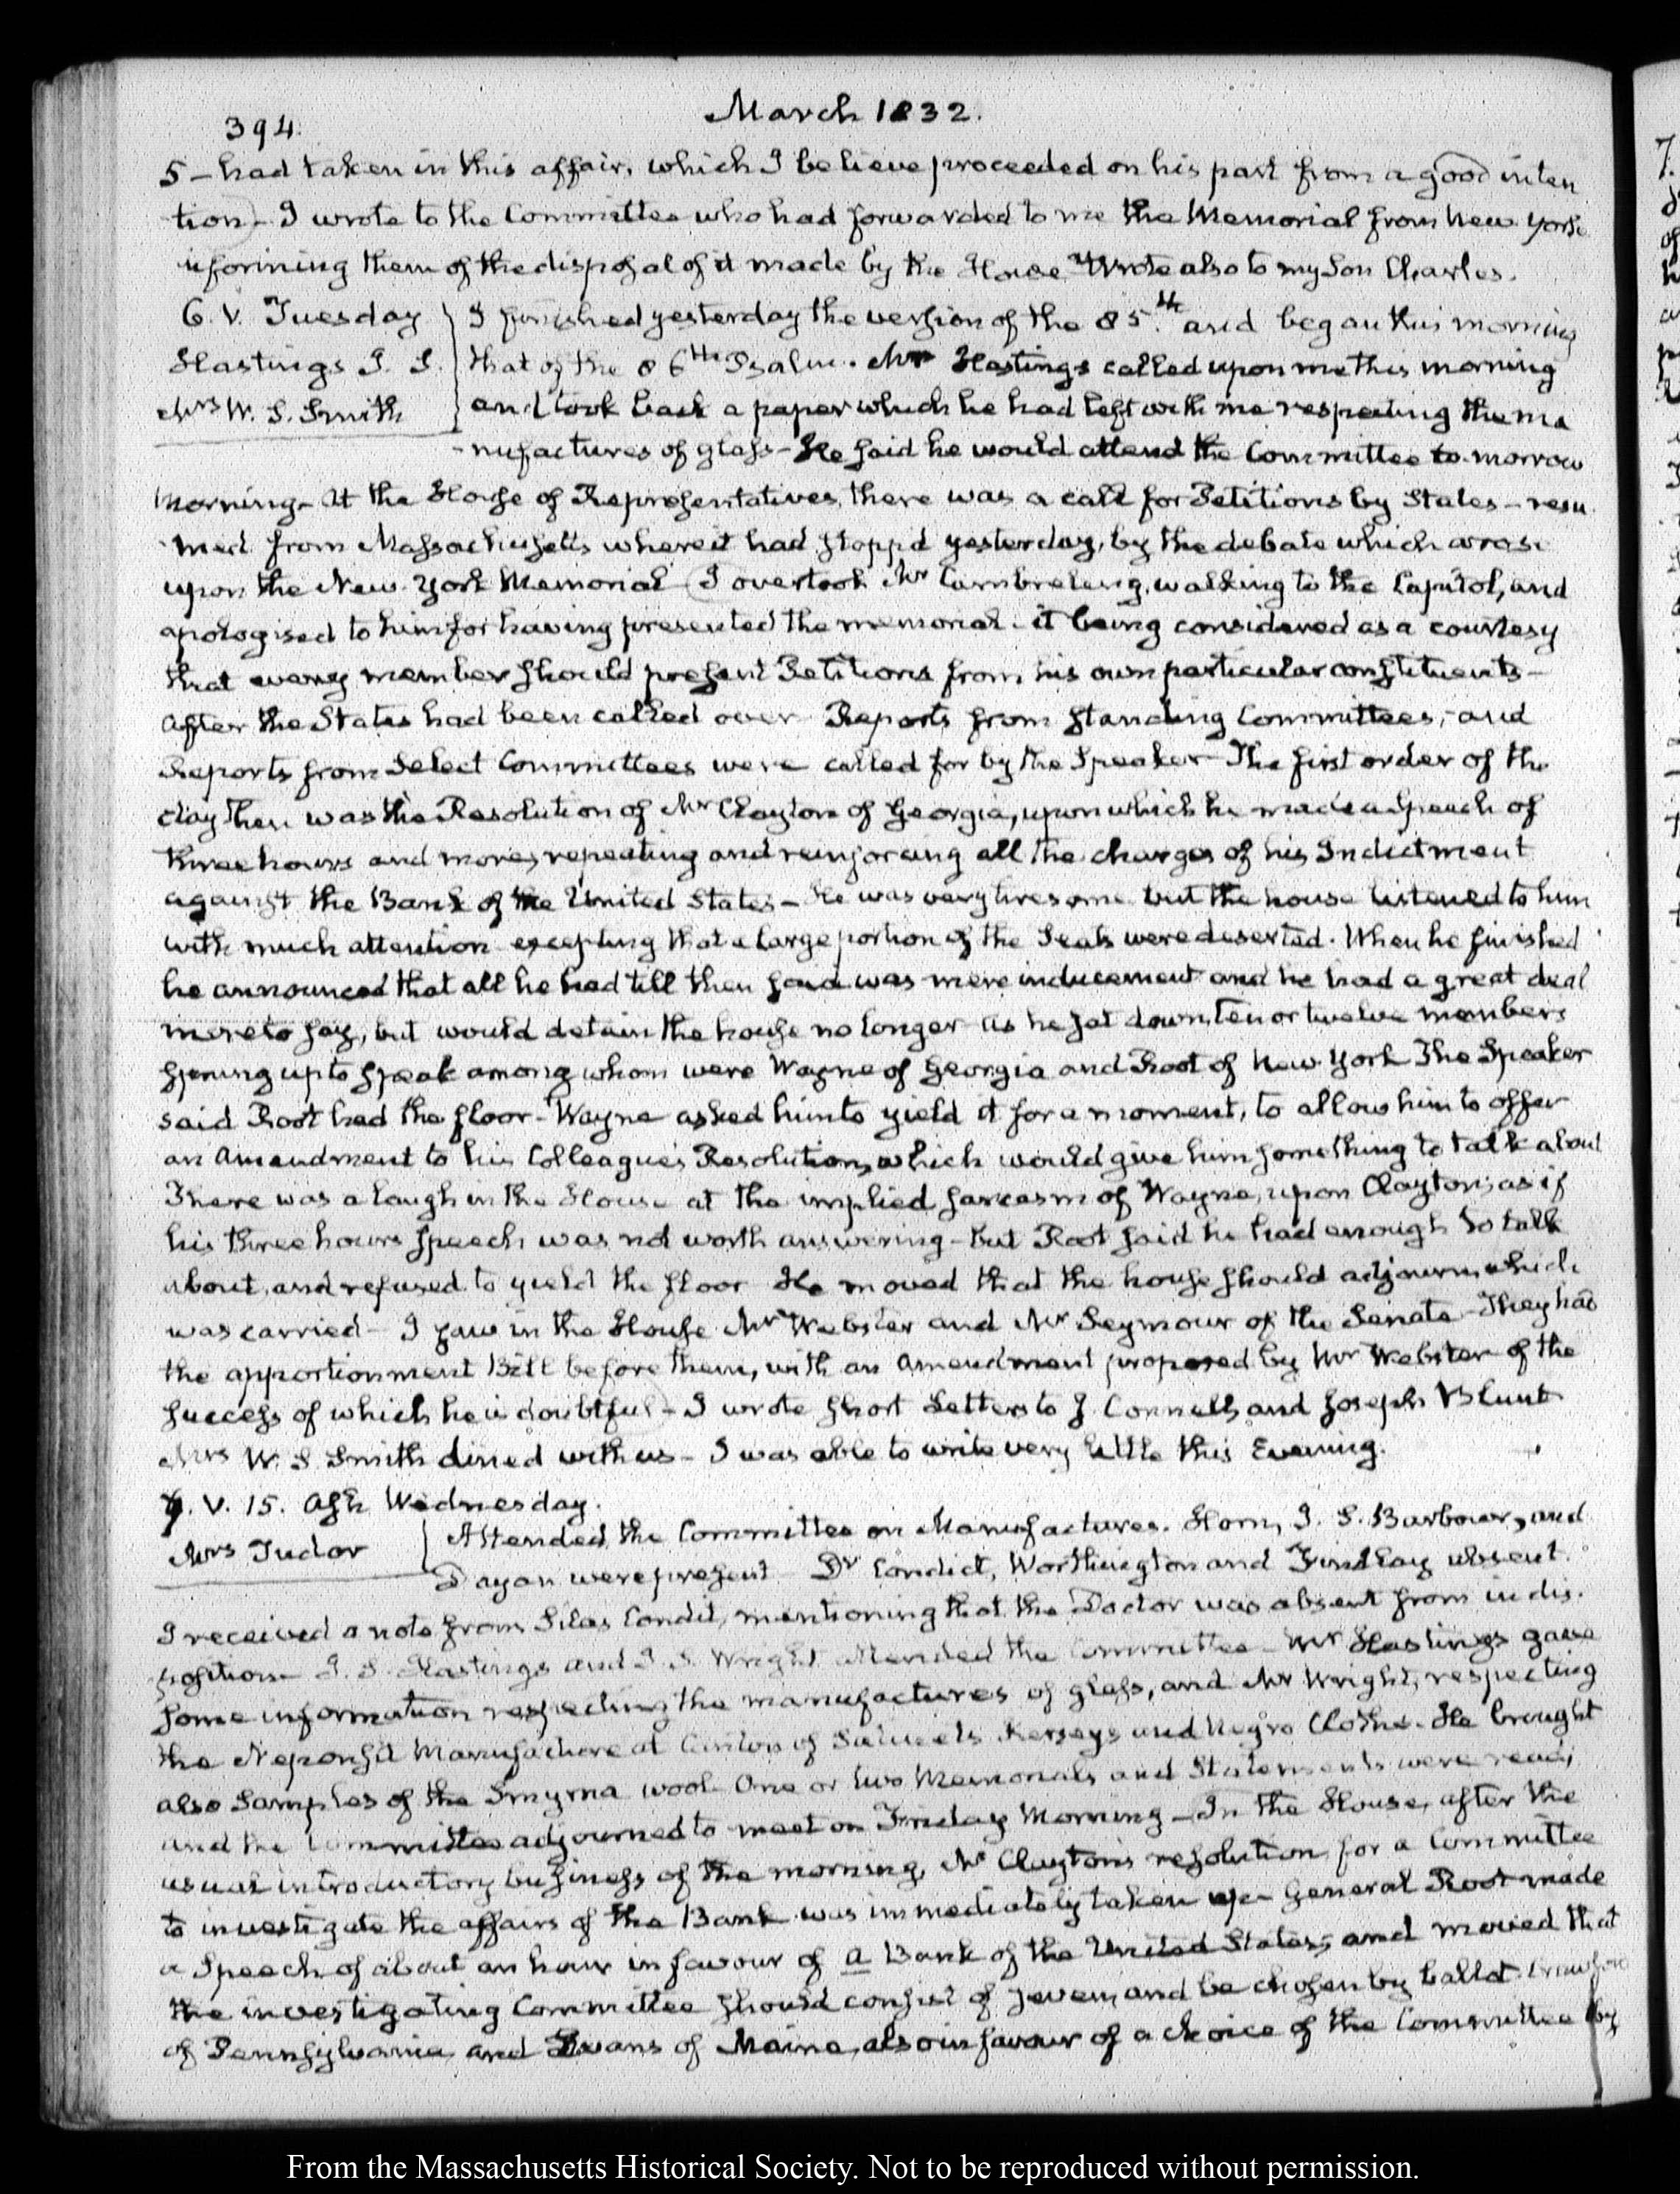 394.
March 1832.
5 — had taken in this affair, which I believe proceeded on his part from a good inten
tion — I wrote to the Committee who had forwarded to me the Memorial from New York
informing them of the disposal of it made by the House. Wrote also to my Son Charles.
6. V. Tuesday
Hastings J. S.
Mrs W. S. Smith
I finished yesterday the version of the 85.th and began this morning
that of the 86th Psalm. Mr Hastings called upon me this morning
and took back a paper which he had left with me respecting the ma
-nufactures of glass — He said he would attend the Committee to-morrow
Morning — At the House of Representatives, there was a call for Petitions by States — resu
med from Massachusetts where it had stopp'd yesterday, by the debate which arose
upon the New-York Memorial — I overtook Mr Cambreleng, walking to the Capitol, and
apologised to him for having presented the memorial — it being considered as a courtesy
that every member should present Petitions from his own particular constituents —
After the States had been called over Reports from standing Committees, and
Reports from Select Committees were called for by the Speaker — The first order of the
day then was the Resolution of Mr Clayton of Georgia, upon which he made a Speech of
three hours and more, repeating and reinforcing all the charges of his Indictment
against the Bank of the United States — He was very tiresome but the house listened to him
with much attention excepting that a large portion of the Seats were deserted. When he finished
he announced that all he had till then said was mere inducement and he had a great deal
more to say, but would detain the house no longer — As he sat down, ten or twelve members
sprung up to speak among whom were Wayne of Georgia and Root of New York — The Speaker
said Root had the floor — Wayne asked him to yield it for a moment, to allow him to offer
an Amendment to his Colleague's Resolution, which would give him something to talk about
There was a laugh in the House at the implied sarcasm of Wayne, upon Clayton; as if
his three hours speech was not worth answering — but Root said he had enough to talk
about, and refused to yield the floor — He moved that the house should adjourn which
was carried — I saw in the House Mr Webster and Mr Seymour of the Senate — They had
the apportionment Bill before them, with an Amendment proposed by Mr Webster of the
success of which he is doubtful — I wrote short Letters to J. Connell, and Joseph Blunt
Mrs W. S. Smith dined with us — I was able to write very little this Evening.
7. V. 15. Ash Wednesday.
Mrs Tudor
Attended the Committee on Manufactures. Horn, J. S. Barbour, and
Dayan were present — Dr Condict, Worthington and Findlay absent.
I received a note from Silas Condit, mentioning that the Doctor was absent from indis-
position — J. S. Hastings and J. S. Wright attended the Committee — Mr Hastings gave
some information respecting the manufactures of glass, and Mr Wright, respecting
the Neponsit Manufacture at Canton of Satinets Kerseys and Negro Cloths. He brought
also Samples of the Smyrna wool — One or two Memorials and Statements were read;
and the Committee adjourned to meet on Friday Morning — In the House, after the
usual introductory business of the morning, Mr Clayton's resolution for a Committee
to investigate the affairs of the Bank was immediately taken up — General Root made
a Speech of about an hour in favour of a Bank of the United States; and moved that
the investigating Committee should consist of seven, and be chosen by ballot — Crawford
of Pennsylvania and Evans of Maine, also in favour of a choice of the Committee by
From the Massachusetts Historical Society. Not to be reproduced without permission.